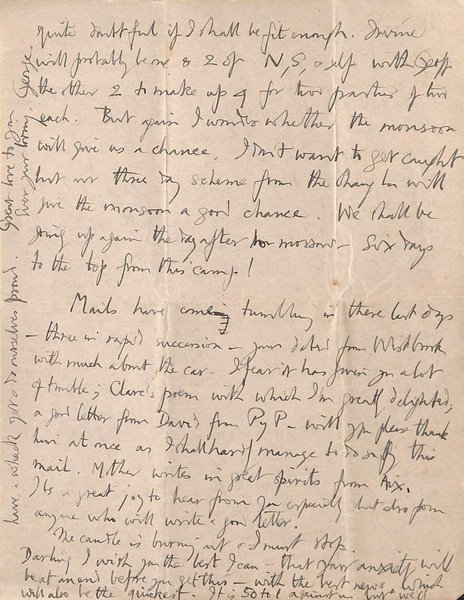 quite doubtful if I shall be fit enough. Irvine
will probably be one & 2 of N, S, & self with Geoff
the other 2 to make up 4 for two parties of two
each. But again I wonder whether the monsoon
will give us a chance. I don't want to get caught
but our three day scheme from the Chang La will
give the monsoon a good chance. We shall be
going up again the day after to morrow – Six days
to the top from this camp!
Mails have come tumbling in these last days
– three in rapid succession – yours dated from Westbrook
with much about the car. I fear it has given you a lot
of trouble; Clare's poem with which I'm greatly delighted,
a good letter from David from PyP – will you please thank
him at once as I shall hardly manage to do so by this
mail. Mother writes in great spirits from Aix.
It's a great joy to hear from you especially but also from
anyone who will write a good letter.
The candle is burning out & I must stop.
Darling I wish you the best I can – that your anxiety will
be at an end before you get this – with the best news. Which
will also be the quickest. It is 50 to 1 against us but we'll
have a whack yet & do ourselves proud. Great love to you
Ever your loving, George